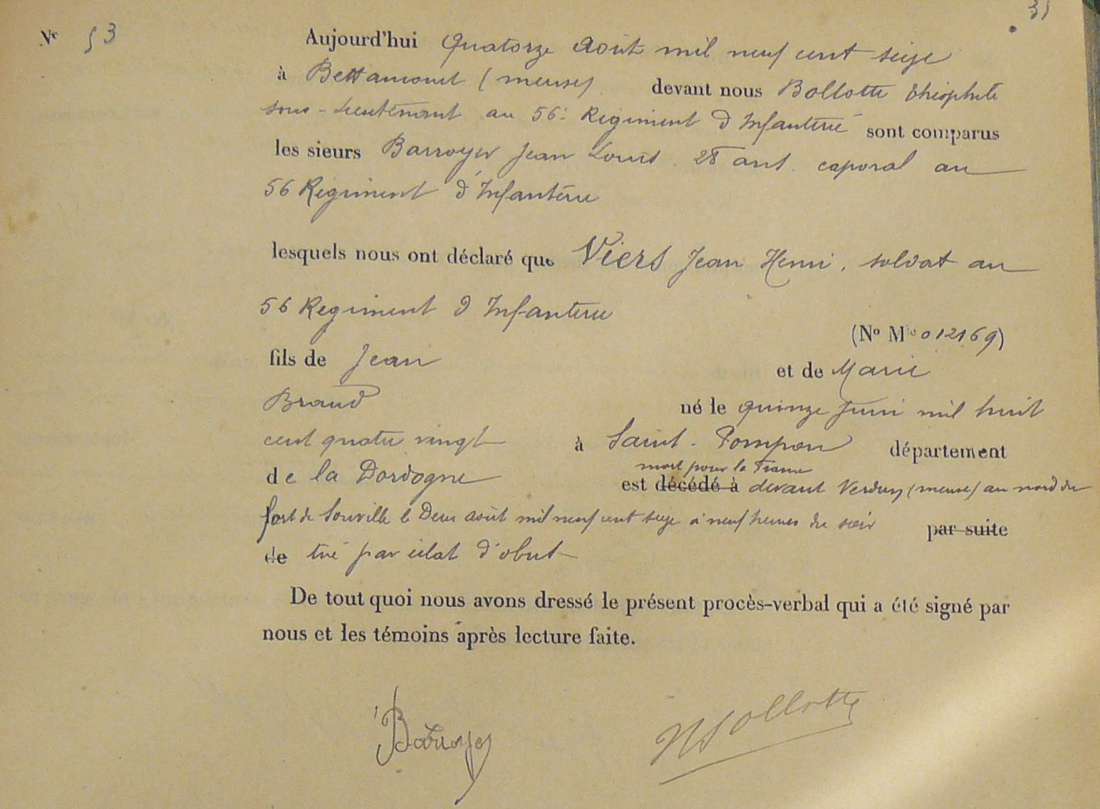 31
No 53 Aujourd'hui quatorze août mil neuf cent seize
à Bettancourt (meuse) devant nous Bollotte théophile
sous-lieutenant au 56e Régiment d'Infanterie sont comparus
les sieurs Barroyer Jean Louis 28 ans caporal au
56 Régiment d'Infanterie
lesquels nous ont déclaré que Viers Jean Henri, soldat au
56 Régiment d'Infanterie
(No Mle 012169)
fils de Jean et de Marie
Braud né le quinze juin mil huit
cent quatre vingt à Saint-Pompon département
mort pour la France
de la Dordogne est décédé à devant Verdun (meuse) au nord du
fort de Souville le Deux août mil neuf cent seize à neuf heures du soir par suite
de tué par éclat d'obus
De tout quoi nous avons dressé le présent procès-verbal qui a été signé par
nous et les témoins après lecture faite.
Barroyer Bollotte